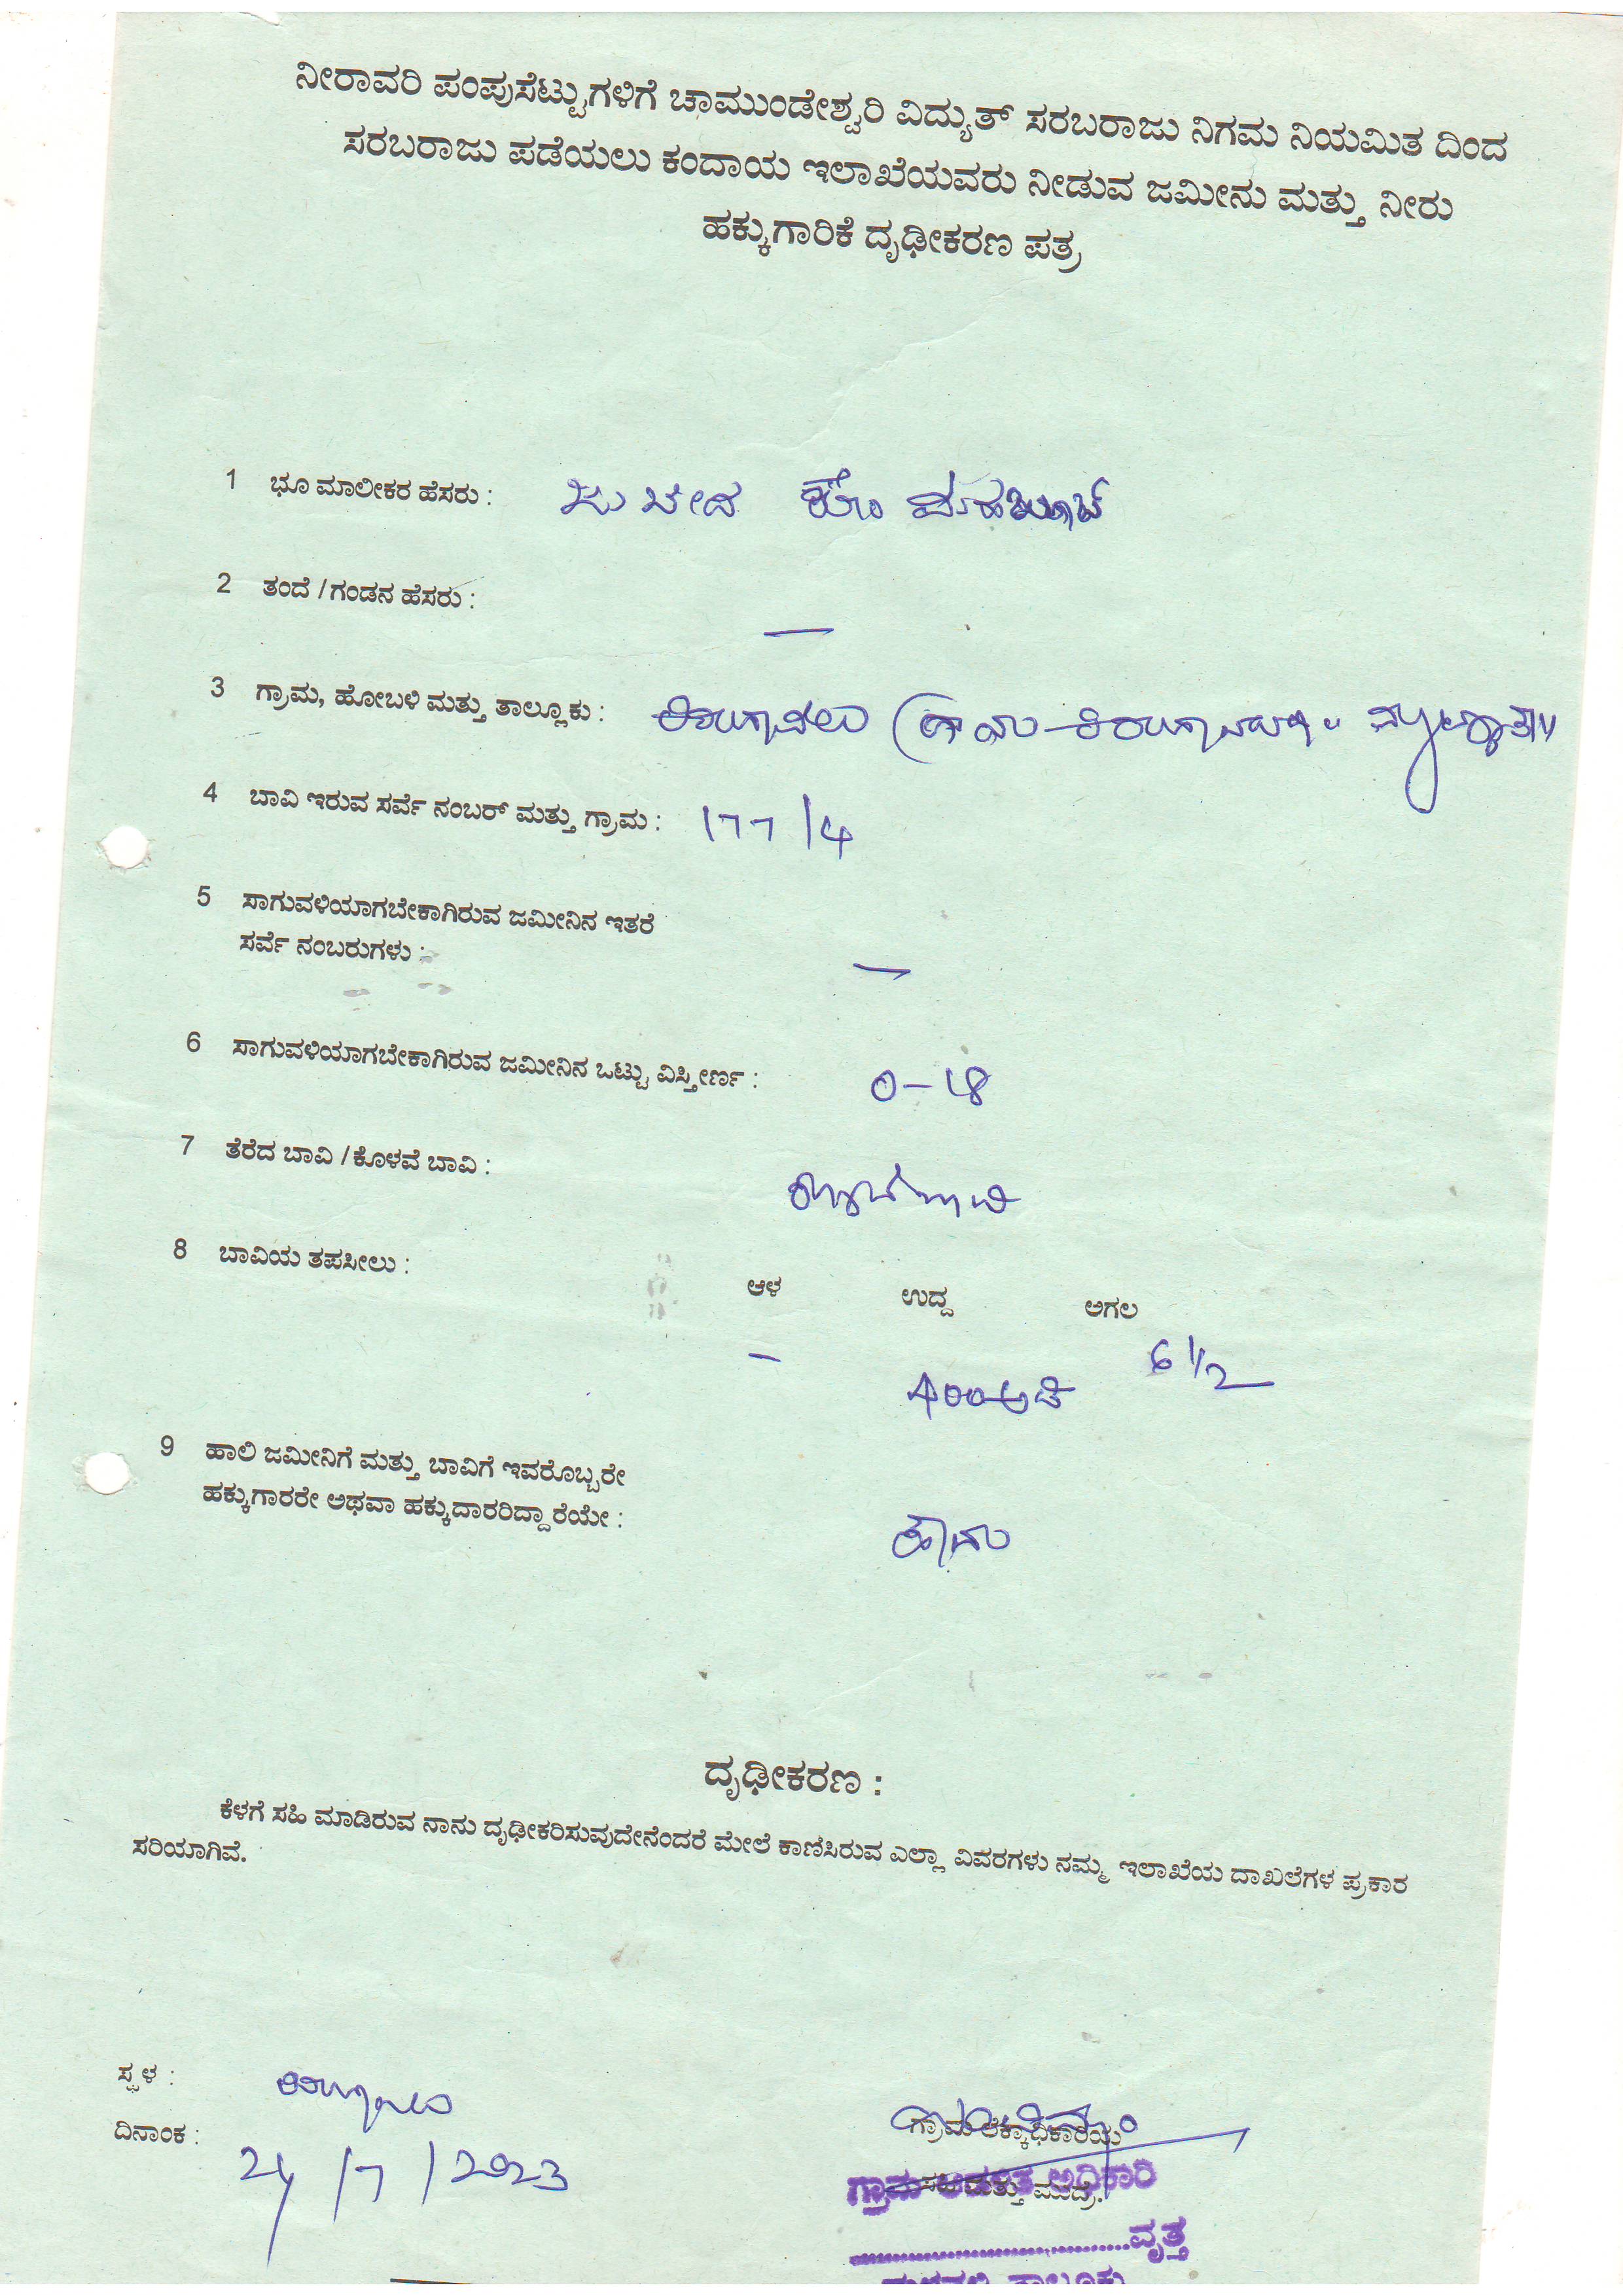 ನೀರಾವರಿ ಪಂಪುಸೆಟ್ಟುಗಳಿಗೆ ಚಾಮುಂಡೇಶ್ವರಿ ವಿದ್ಯುತ್ ಸರಬರಾಜು ನಿಗಮ ನಿಯಮಿತ ದಿಂದ
ಸರಬರಾಜು ಪಡೆಯಲು ಕಂದಾಯ ಇಲಾಖೆಯವರು ನೀಡುವ ಜಮೀನು ಮತ್ತು ನೀರು
ಹಕ್ಕುಗಾರಿಕೆ ದೃಢೀಕರಣ ಪತ್ರ
1 ಭೂ ಮಾಲೀಕರ ಹೆಸರು : ಕೋಂ ಮಹಬೂಬ್
2 ತಂದೆ / ಗಂಡನ ಹೆಸರು : —
3 ಗ್ರಾಮ, ಹೋಬಳಿ ಮತ್ತು ತಾಲ್ಲೂಕು :
4 ಬಾವಿ ಇರುವ ಸರ್ವೆ ನಂಬರ್ ಮತ್ತು ಗ್ರಾಮ : 177/4
5 ಸಾಗುವಳಿಯಾಗಬೇಕಾಗಿರುವ ಜಮೀನಿನ ಇತರೆ
ಸರ್ವೆ ನಂಬರುಗಳು : —
6 ಸಾಗುವಳಿಯಾಗಬೇಕಾಗಿರುವ ಜಮೀನಿನ ಒಟ್ಟು ವಿಸ್ತೀರ್ಣ : 0-18
7 ತೆರೆದ ಬಾವಿ / ಕೊಳವೆ ಬಾವಿ :
8 ಬಾವಿಯ ತಪಸೀಲು : ಆಳ ಉದ್ದ ಅಗಲ
— 400 ಅಡಿ 6 1/2
9 ಹಾಲಿ ಜಮೀನಿಗೆ ಮತ್ತು ಬಾವಿಗೆ ಇವರೊಬ್ಬರೇ
ಹಕ್ಕುಗಾರರೇ ಅಥವಾ ಹಕ್ಕುದಾರರಿದ್ದಾರೆಯೇ :
ದೃಢೀಕರಣ :
ಕೆಳಗೆ ಸಹಿ ಮಾಡಿರುವ ನಾನು ದೃಢೀಕರಿಸುವುದೇನೆಂದರೆ ಮೇಲೆ ಕಾಣಿಸಿರುವ ಎಲ್ಲಾ ವಿವರಗಳು ನಮ್ಮ ಇಲಾಖೆಯ ದಾಖಲೆಗಳ ಪ್ರಕಾರ
ಸರಿಯಾಗಿವೆ.
ಸ್ಥಳ :
ದಿನಾಂಕ : 24/7/2023
ಗ್ರಾಮ ಲೆಕ್ಕಾಧಿಕಾರಿಯ
ಸಹಿ ಮತ್ತು ಮುದ್ರೆ.
ಗ್ರಾಮ ಆಡಳಿತ ಅಧಿಕಾರಿ
..............................ವೃತ್ತ